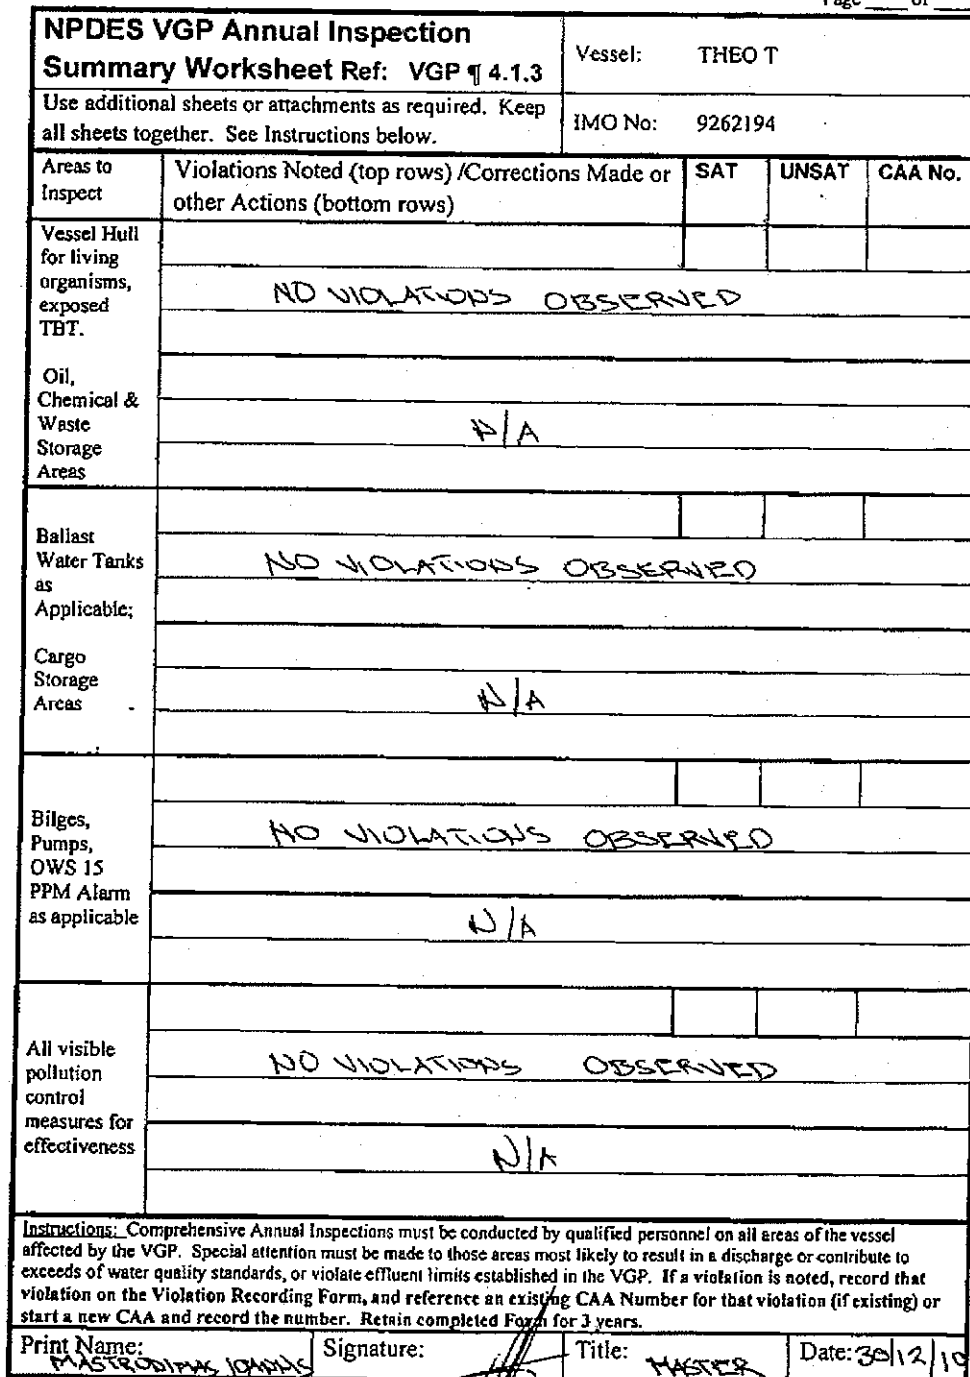 Page ____ of ____
NPDES VGP Annual Inspection
Summary Worksheet Ref: VGP ¶ 4.1.3
Vessel: THEO T
Use additional sheets or attachments as required. Keep
all sheets together. See Instructions below.
IMO No: 9262194
Areas to
Inspect
Violations Noted (top rows) /Corrections Made or
other Actions (bottom rows)
SAT UNSAT CAA No.
Vessel Hull
for living
organisms,
exposed
TBT.
NO VIOLATIONS OBSERVED
Oil,
Chemical &
Waste
Storage
Areas
N/A
Ballast
Water Tanks
as
Applicable;
NO VIOLATIONS OBSERVED
Cargo
Storage
Areas
N/A
Bilges,
Pumps,
OWS 15
PPM Alarm
as applicable
NO VIOLATIONS OBSERVED
N/A
All visible
pollution
control
measures for
effectiveness
NO VIOLATIONS OBSERVED
N/A
Instructions: Comprehensive Annual Inspections must be conducted by qualified personnel on all areas of the vessel
affected by the VGP. Special attention must be made to those areas most likely to result in a discharge or contribute to
exceeds of water quality standards, or violate effluent limits established in the VGP. If a violation is noted, record that
violation on the Violation Recording Form, and reference an existing CAA Number for that violation (if existing) or
start a new CAA and record the number. Retain completed Form for 3 years.
Print Name: MASTRODIMAS IOANNIS Signature: Title: MASTER Date: 30/12/10